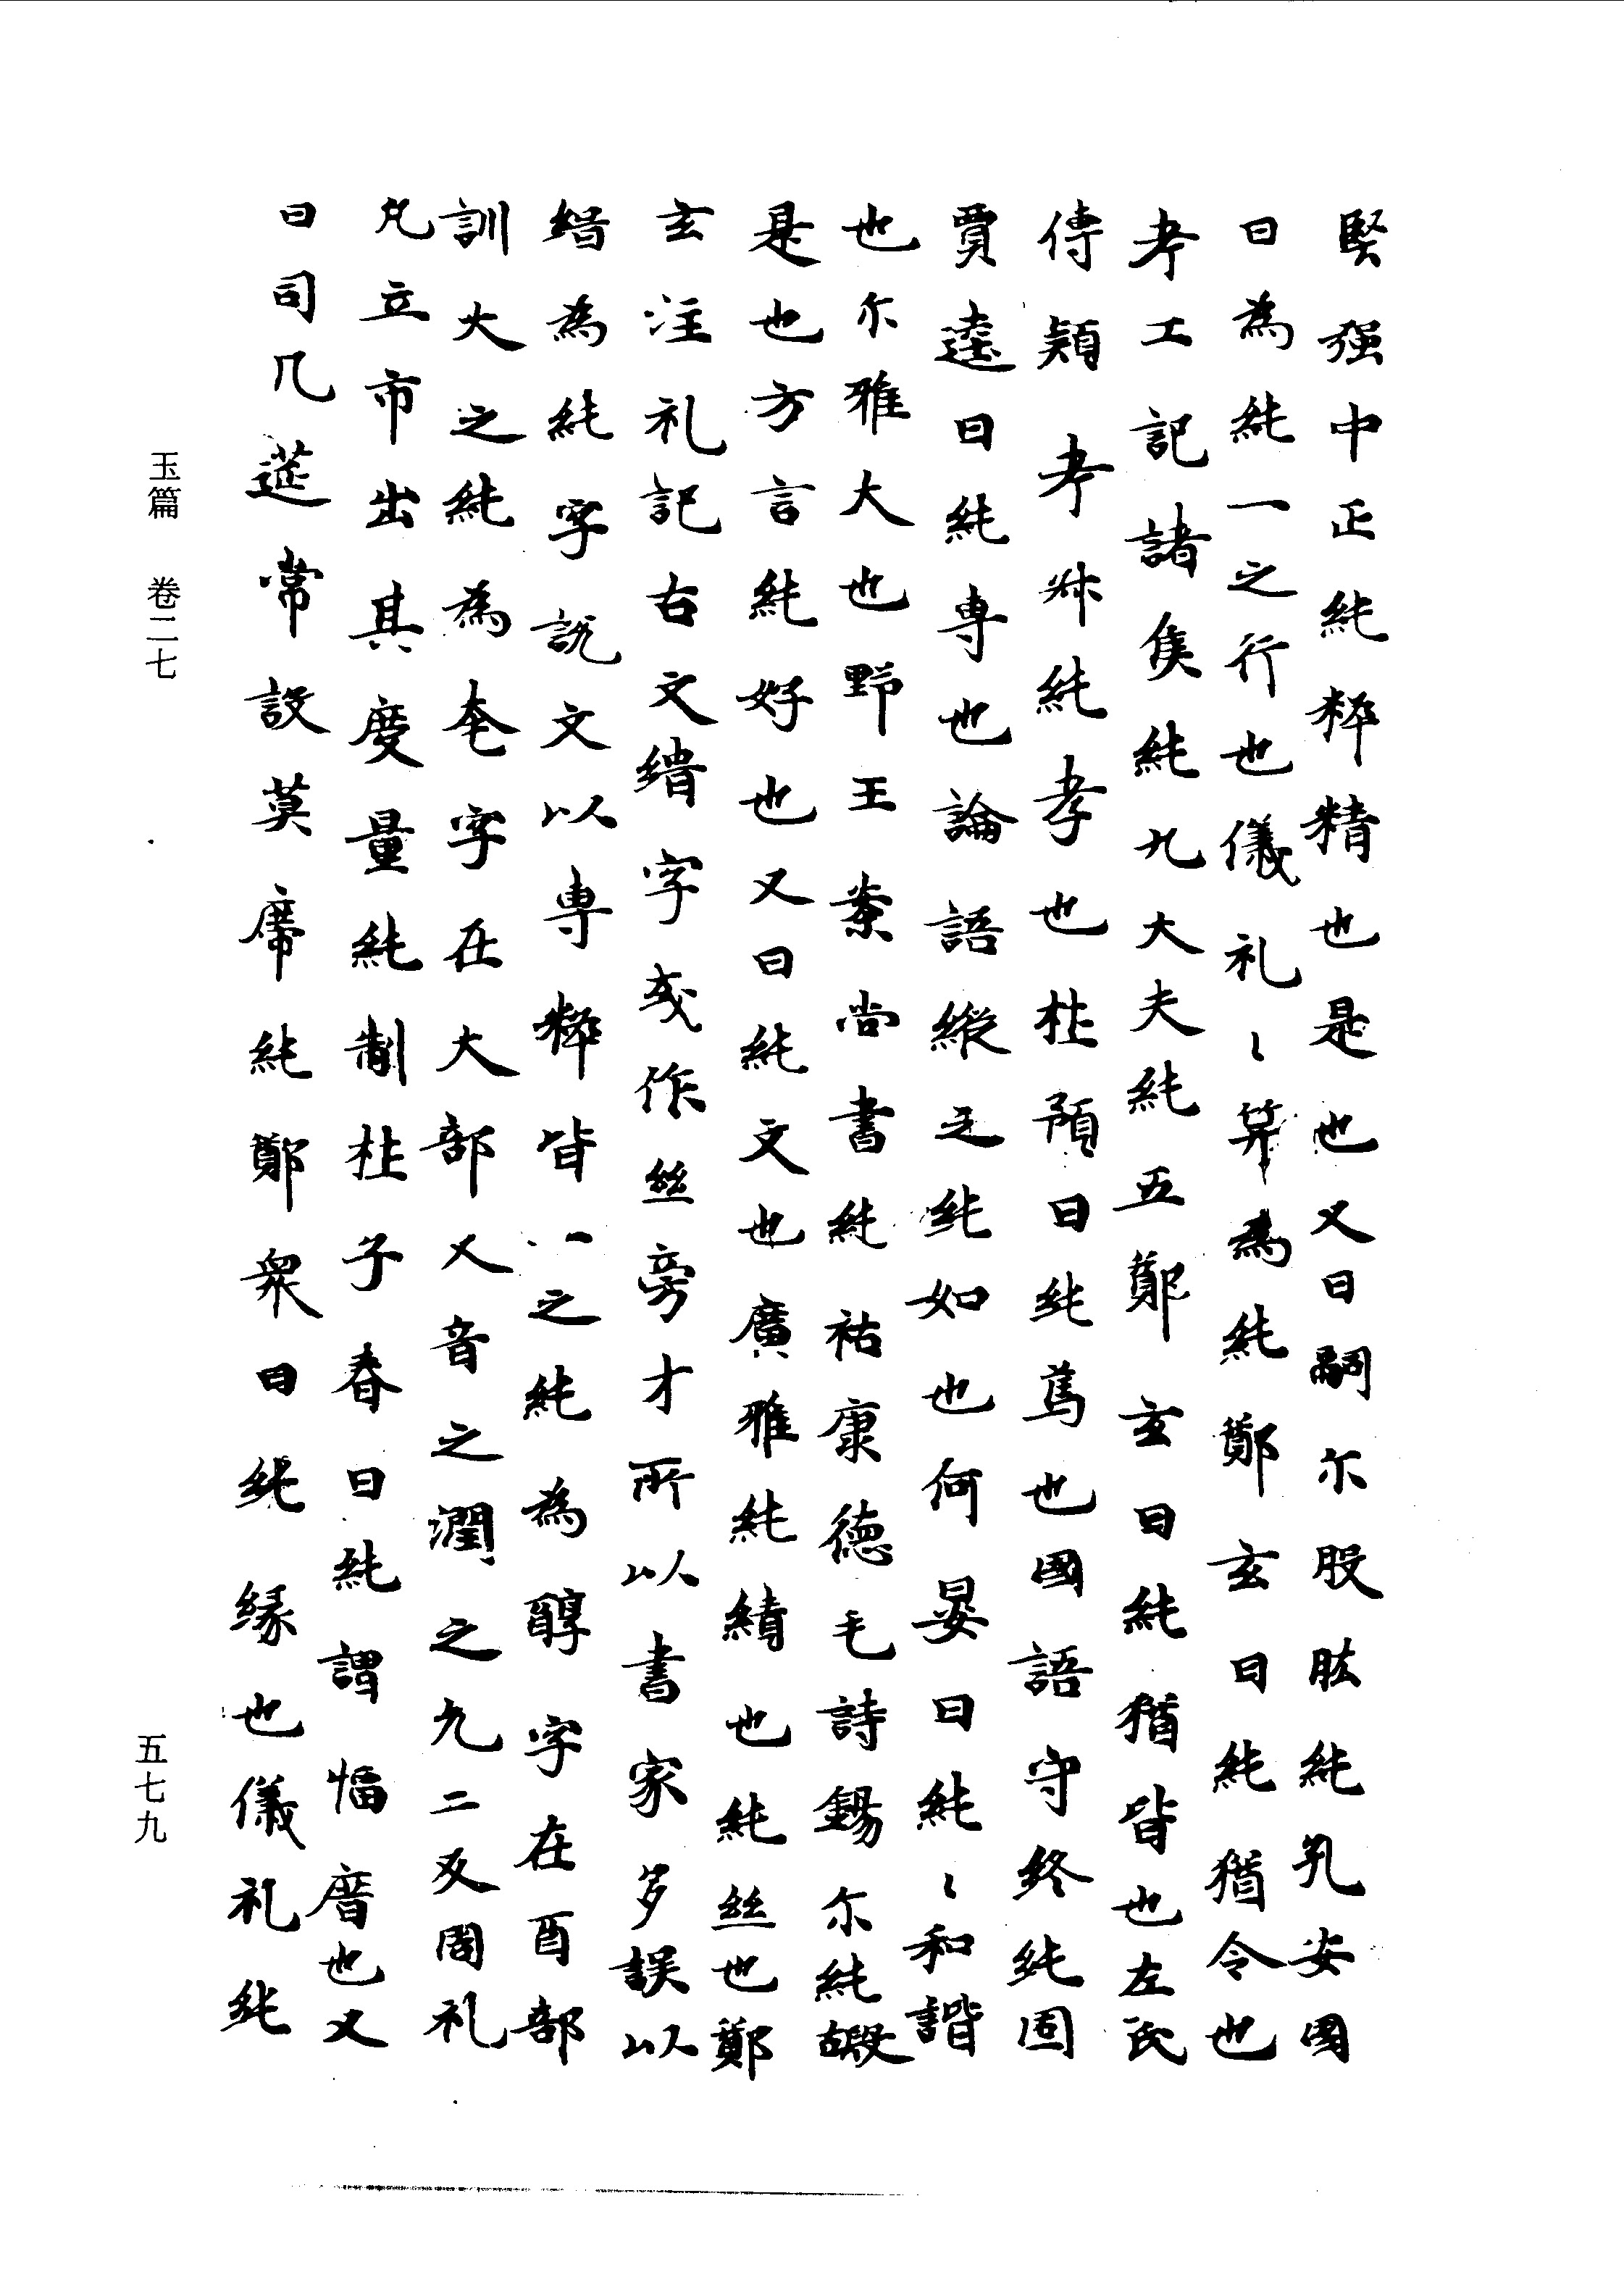 堅强中正純粹精也是也又曰嗣尔股肱純孔安國
曰為純一之行也儀礼〻筭為純鄭玄曰純猶令也
考工記諸侯純九大夫純五鄭玄曰純猶皆也左氏
傳穎考叔純孝也杜預曰純篤也國語守終純固
賈逵曰純專也論語縱之純如也何晏曰純〻和諧
也尓雅大也野王案尚書純祐康德毛詩錫尓純嘏
是也方言純好也又曰純文也廣雅純績也純絲也鄭
玄注礼記古文緇字或作絲旁才所以書家多誤以
緇為純字說文以專粹皆一之純為醇字在酉部
訓大之純為奄字在大部又音之潤之九二反周礼
凡立市出其度量純制杜子春曰純謂幅廣也又
曰司几莚常設莫席純鄭眾曰純緣也儀礼純
玉篇 卷二七
五七九